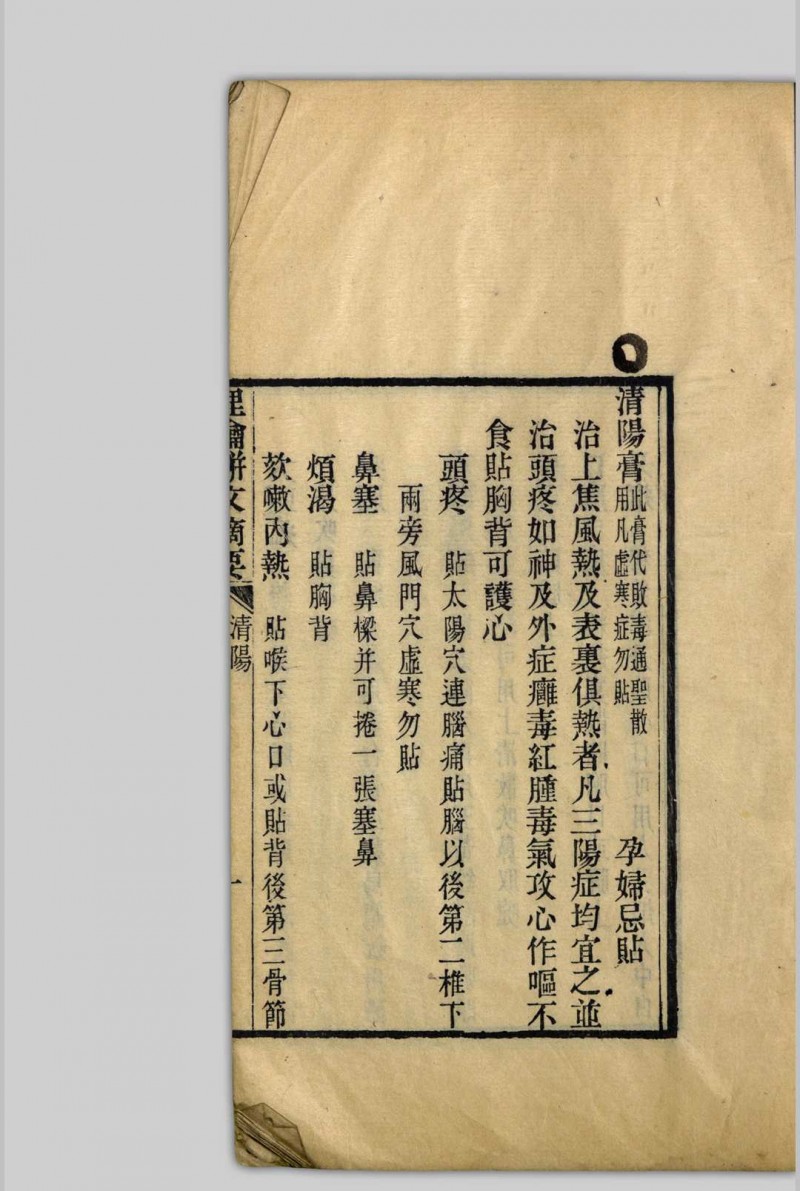 清陽膏此膏代敗毒通聖散用凡虛寒症勿貼　孕婦忌貼
治上焦風熱及表裏俱熱者凡三陽症均宜之並
治頭疼如神及外症癰毒紅腫毒氣攻心作嘔不
食貼胸背可護心
頭疼　貼太陽穴連腦痛貼腦以後第二椎下
兩旁風門穴虛寒勿貼
鼻塞　貼鼻樑并可捲一張塞鼻
煩渴　貼胸背
欬嗽內熱　貼喉下心口或貼背後第三骨節
理瀹駢文摘要　清陽　一